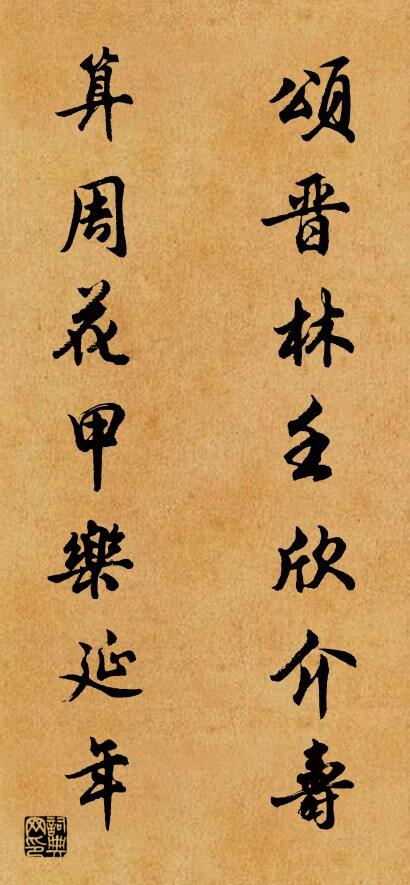 頌晋林壬欣介壽
算周花甲樂延年
詞典
网印